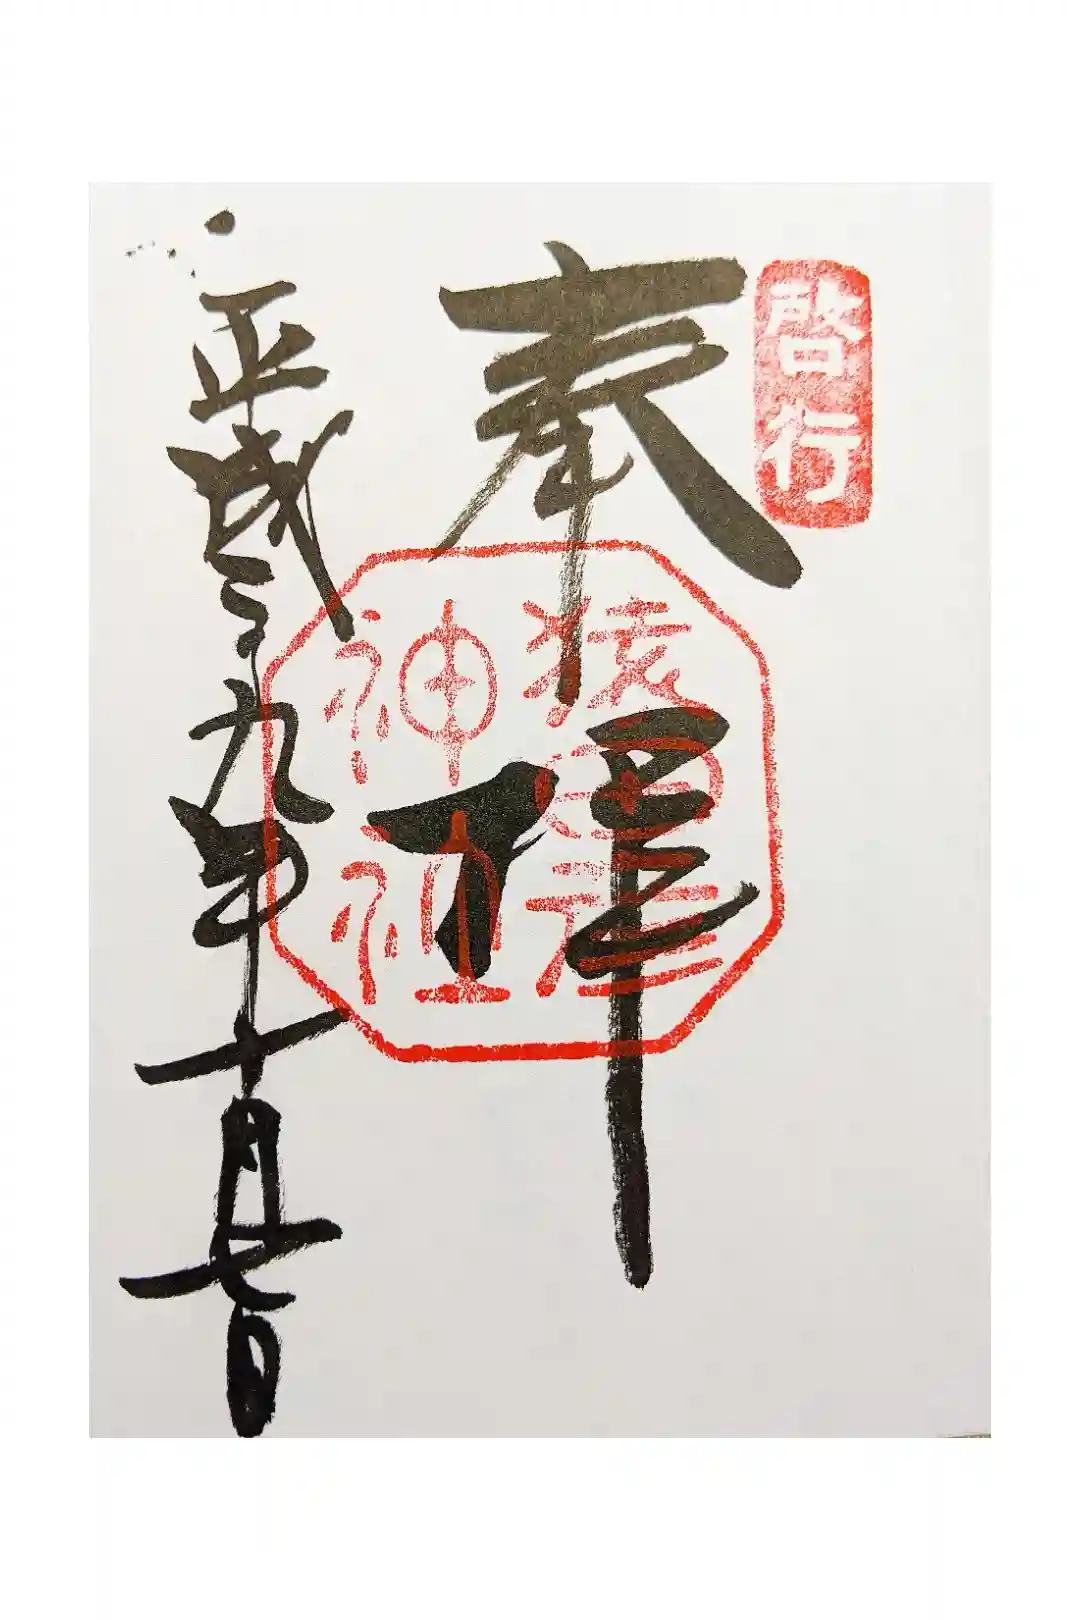 啓行
奉拝
猿田彦
神社
平成二九年十月七日